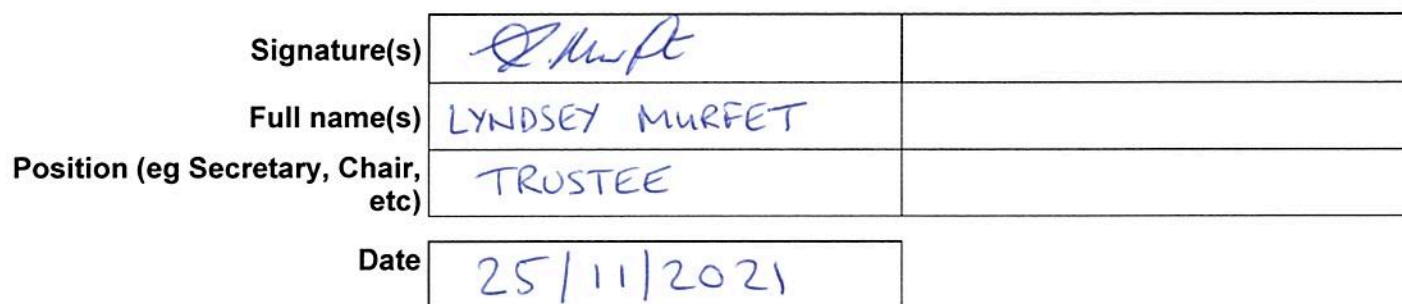 Signature(s) L Murfet
Full name(s) LYNDSEY MURFET
Position (eg Secretary, Chair,
etc) TRUSTEE
Date 25/11/2021